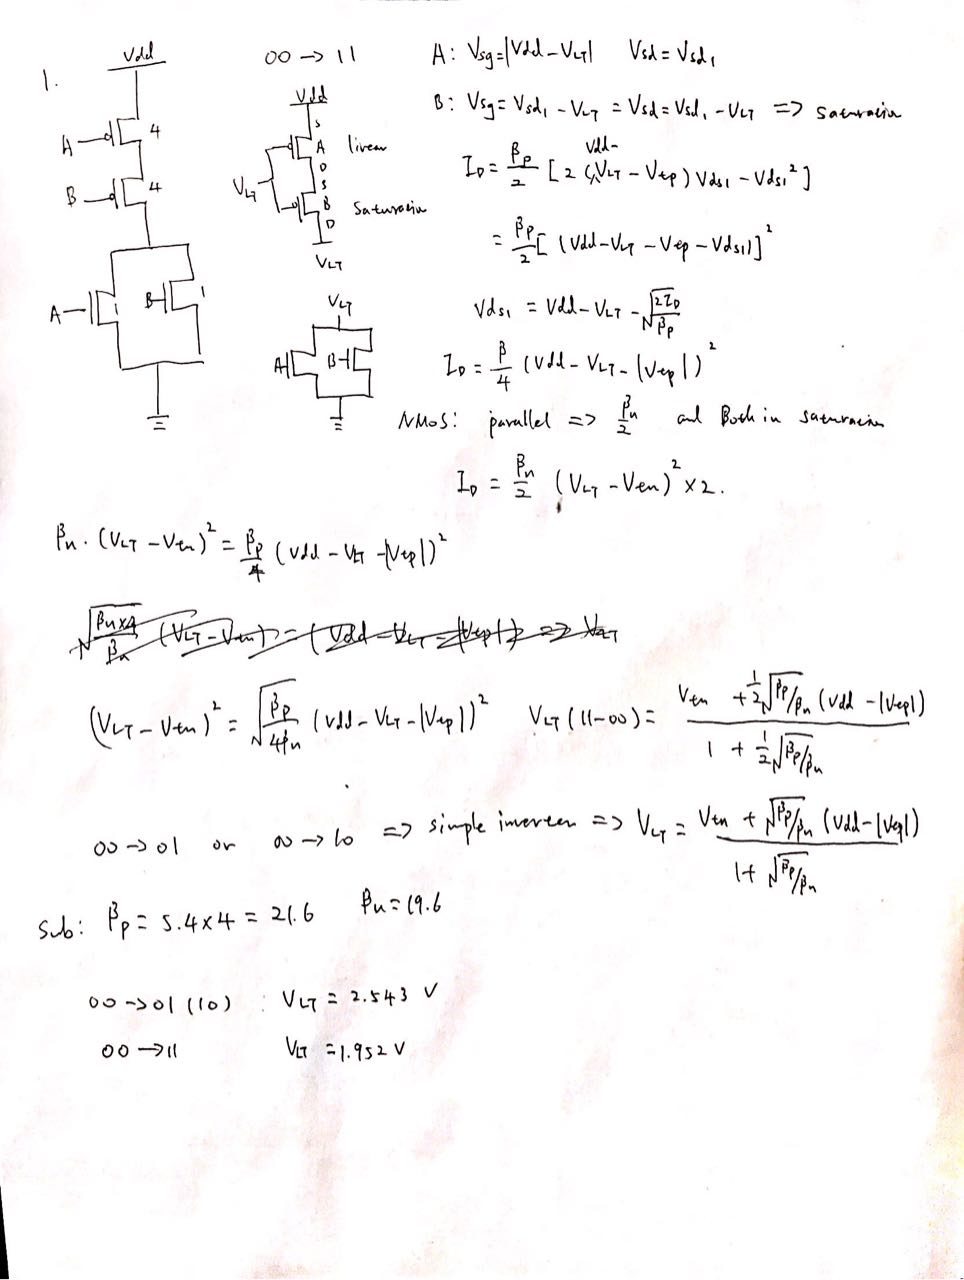 1.
Vdd
A
4
B
4
A
1
B
1
00 → 11
Vdd
S
A linear
D
S
VLT
B Saturation
D
VLT
VLT
A
B
A: Vsg=|Vdd-VLT| Vsd=Vsd1
B: Vsg=Vsd1-VLT=Vsd=Vsd1-VLT => saturation
ID = βp/2 [2(Vdd-VLT-Vtp)Vds1-Vds1²]
= βp/2 [(Vdd-VLT-Vtp-Vds1)]²
Vds1 = Vdd-VLT-√(2ID/βp)
ID = β/4 (Vdd-VLT-|Vtp|)²
NMOS: parallel => βn/2 and Both in saturation
ID = βn/2 (VLT-Vtn)² ×2.
βn·(VLT-Vtn)² = βp/4 (Vdd-VLT-|Vtp|)²
(VLT-Vtn)² = √(βp/4βn) (Vdd-VLT-|Vtp|)² VLT(11-00) = (Vtn + 1/2√(βp/βn) (Vdd-|Vtp|)) / (1 + 1/2√(βp/βn))
00→01 or 00→10 => simple inverter => VLT = (Vtn + √(βp/βn) (Vdd-|Vtp|)) / (1+√(βp/βn))
Sub: βp = 5.4×4 = 21.6 βn=19.6
00→01(10) : VLT = 2.543 V
00→11 VLT = 1.952 V